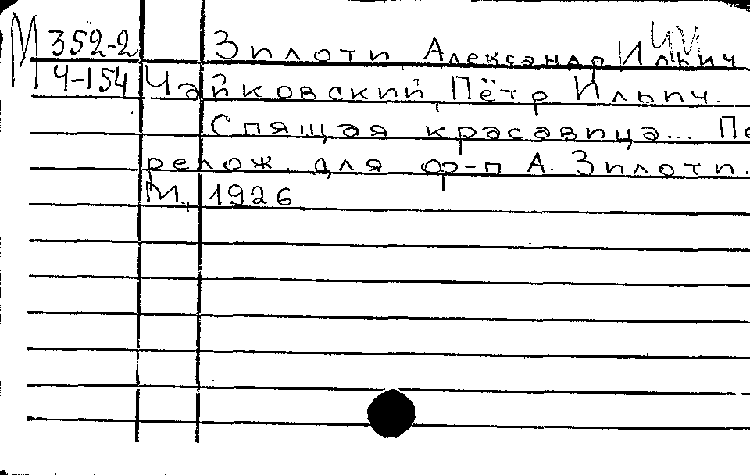 М 352-2 Зилоти, Александр Ильич
Ч-154 Чайковский, Пётр Ильич.
Спящая красавица... Пе
релож. для ф-п А. Зилоти.
М., 1926